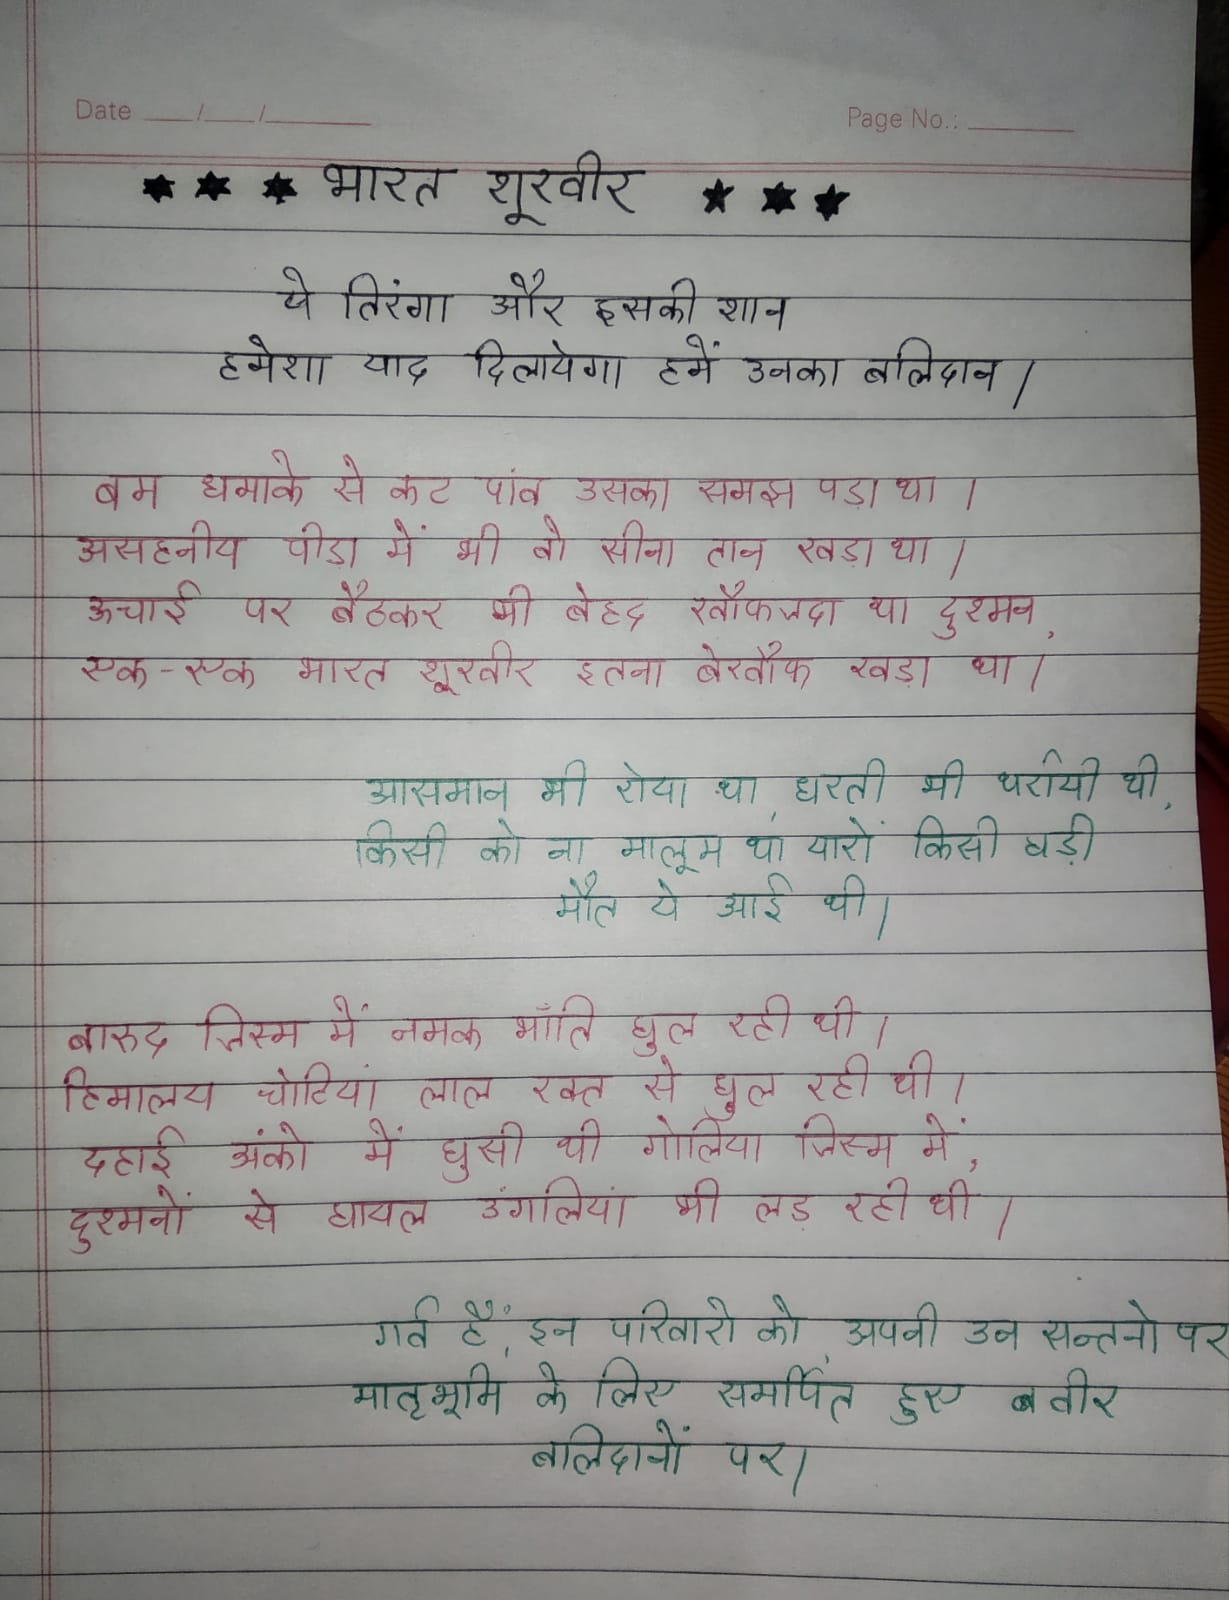 Date __/__/____ Page No.: ____
★ ★ ★ भारत शूरवीर ★ ★ ★
ये तिरंगा और इसकी शान
हमेशा याद दिलायेगा हमें उनका बलिदान।
बम धमाके से कट पांव उसका समझ पड़ा था।
असहनीय पीड़ा में भी वो सीना तान खड़ा था।
ऊचाई पर बैठकर भी बेहद खौफजदा था दुश्मन,
एक-एक भारत शूरवीर इतना बेखौफ खड़ा था।
आसमान भी रोया था, धरती भी थर्रायी थी,
किसी को ना मालूम था, यारों किसी घड़ी
मौत ये आई थी।
बारुद जिस्म में नमक भाँति घुल रही थी।
हिमालय चोटियां लाल रक्त से धुल रही थी।
दहाई अंको में घुसी थी गोलिया जिस्म में,
दुश्मनों से घायल उंगलियां भी लड़ रही थी।
गर्व हैं, इन परिवारो को, अपनी उन सन्तनो पर
मातृभूमि के लिए समर्पित हुए वीर
बलिदानों पर।